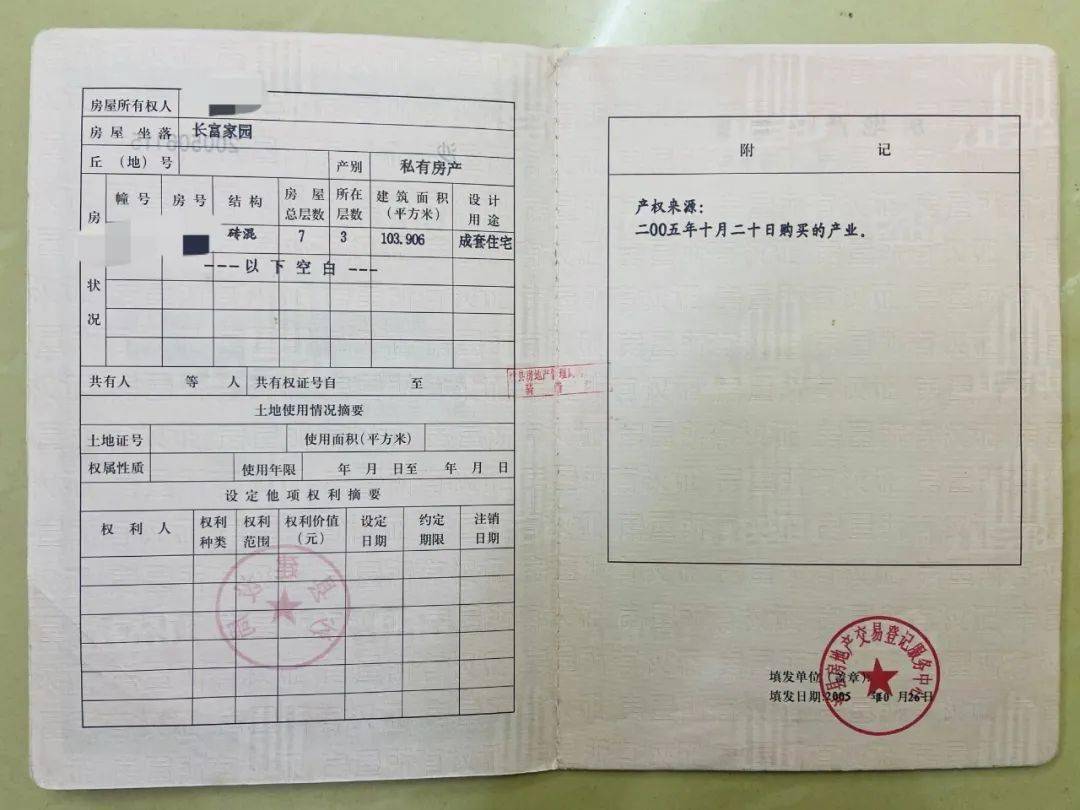 房屋所有权人
房屋坐落 长富家园
丘(地)号 产别 私有房产
房 状况
幢号 房号 结构 房屋总层数 所在层数 建筑面积(平方米) 设计用途
砖混 7 3 103.906 成套住宅
---以下空白---
共有人 等 人 共有权证号自 至
土地使用情况摘要
土地证号 使用面积(平方米)
权属性质 使用年限 年 月 日至 年 月 日
设定他项权利摘要
权利人 权利种类 权利范围 权利价值(元) 设定日期 约定期限 注销日期
附 记
产权来源:
二00五年十月二十日购买的产业。
县房地产
县房地产交易登记服务中心
填发单位(盖章)
填发日期:2005 年10 月26日